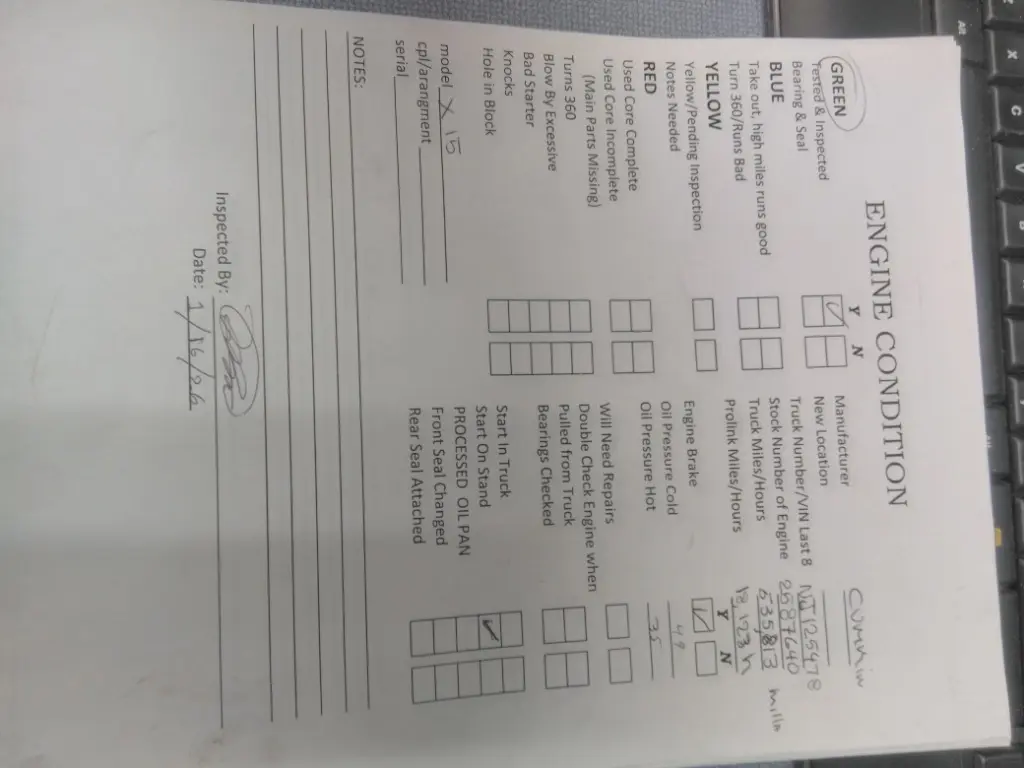 ENGINE CONDITION
Y N
GREEN
Tested & Inspected
Bearing & Seal
BLUE
Take out, high miles runs good
Turn 360/Runs Bad
YELLOW
Yellow/Pending Inspection
Notes Needed
RED
Used Core Complete
Used Core Incomplete
(Main Parts Missing)
Turns 360
Blow By Excessive
Bad Starter
Knocks
Hole in Block
model X 15
cpl/arrangment
serial
Manufacturer Cummin
New Location
Truck Number/VIN Last 8 NJ125478
Stock Number of Engine 2587640
Truck Miles/Hours 635,813 mills
Prolink Miles/Hours 18,123 h
Y N
Engine Brake
Oil Pressure Cold 49
Oil Pressure Hot 35
Will Need Repairs
Double Check Engine when
Pulled from Truck
Bearings Checked
Start In Truck
Start On Stand
PROCESSED OIL PAN
Front Seal Changed
Rear Seal Attached
NOTES:
Inspected By:
Date: 1/16/26
Alt
X
C
V